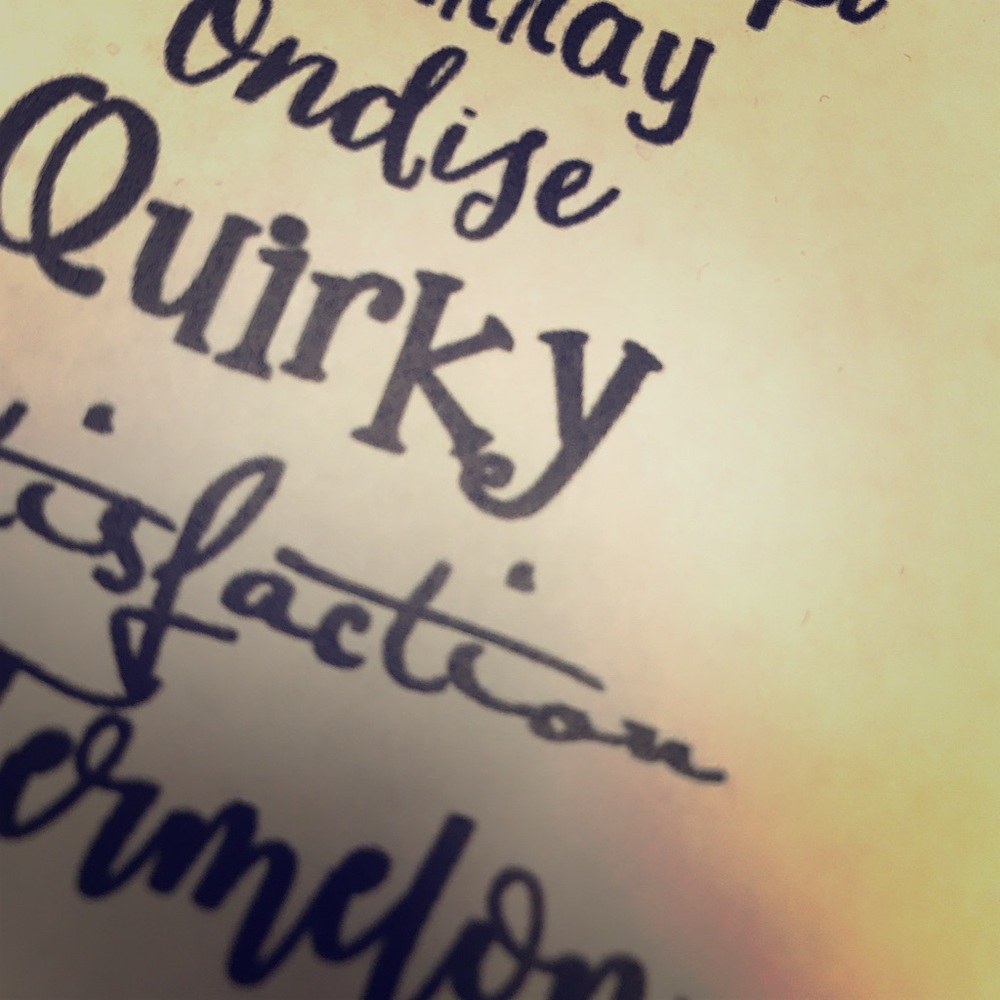 Ondise
Quirky
tisfaction
ermelon